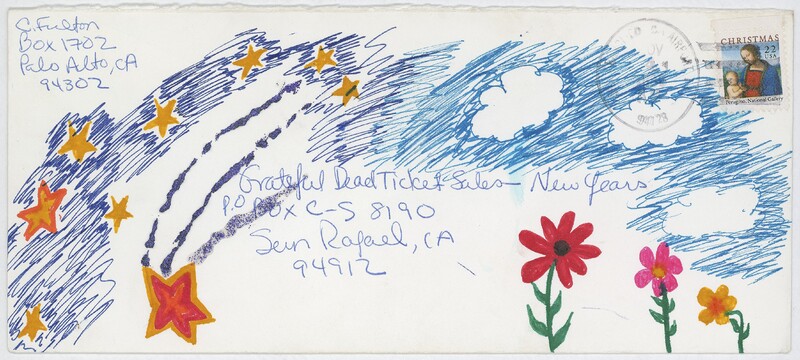 C. Fulton
Box 1702
Palo Alto, CA
94302
CHRISTMAS
22
USA
Perugino, National Gallery
Grateful Dead Ticket Sales - New Years
P.O. Box C-S 8190
San Rafael, CA
94912